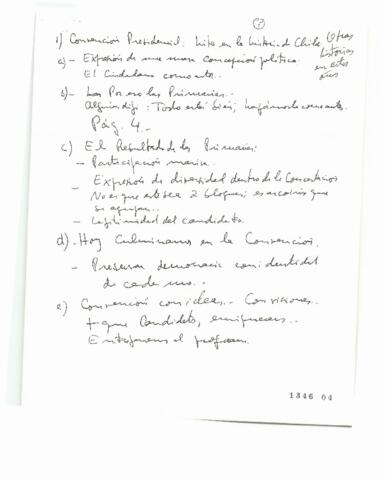 (2)
1) Convención Presidencial: hito en la historia de Chile
Otras
historias
en estos
días
a) - Expresión de una nueva concepción política.
El Ciudadano como actor.
b) - Las Primarias.
Alguien dijo: Todo está bien; hagámoslo como antes.
Pág. 4.-
c) El Resultado de las Primarias:
- Participación masiva.
- Expresión de diversidad dentro de la Concertación
No es que exista 2 bloques; es arcoiris que
se agrupan..
- Legitimidad del candidato.
d) - Hoy Culminamos en la Convención.
- Preservar democracia con identidad
de cada uno. -
e) Convención con ideas. - Con visiones.
+ que Candidato,
Entregamos el programa.
1346 04